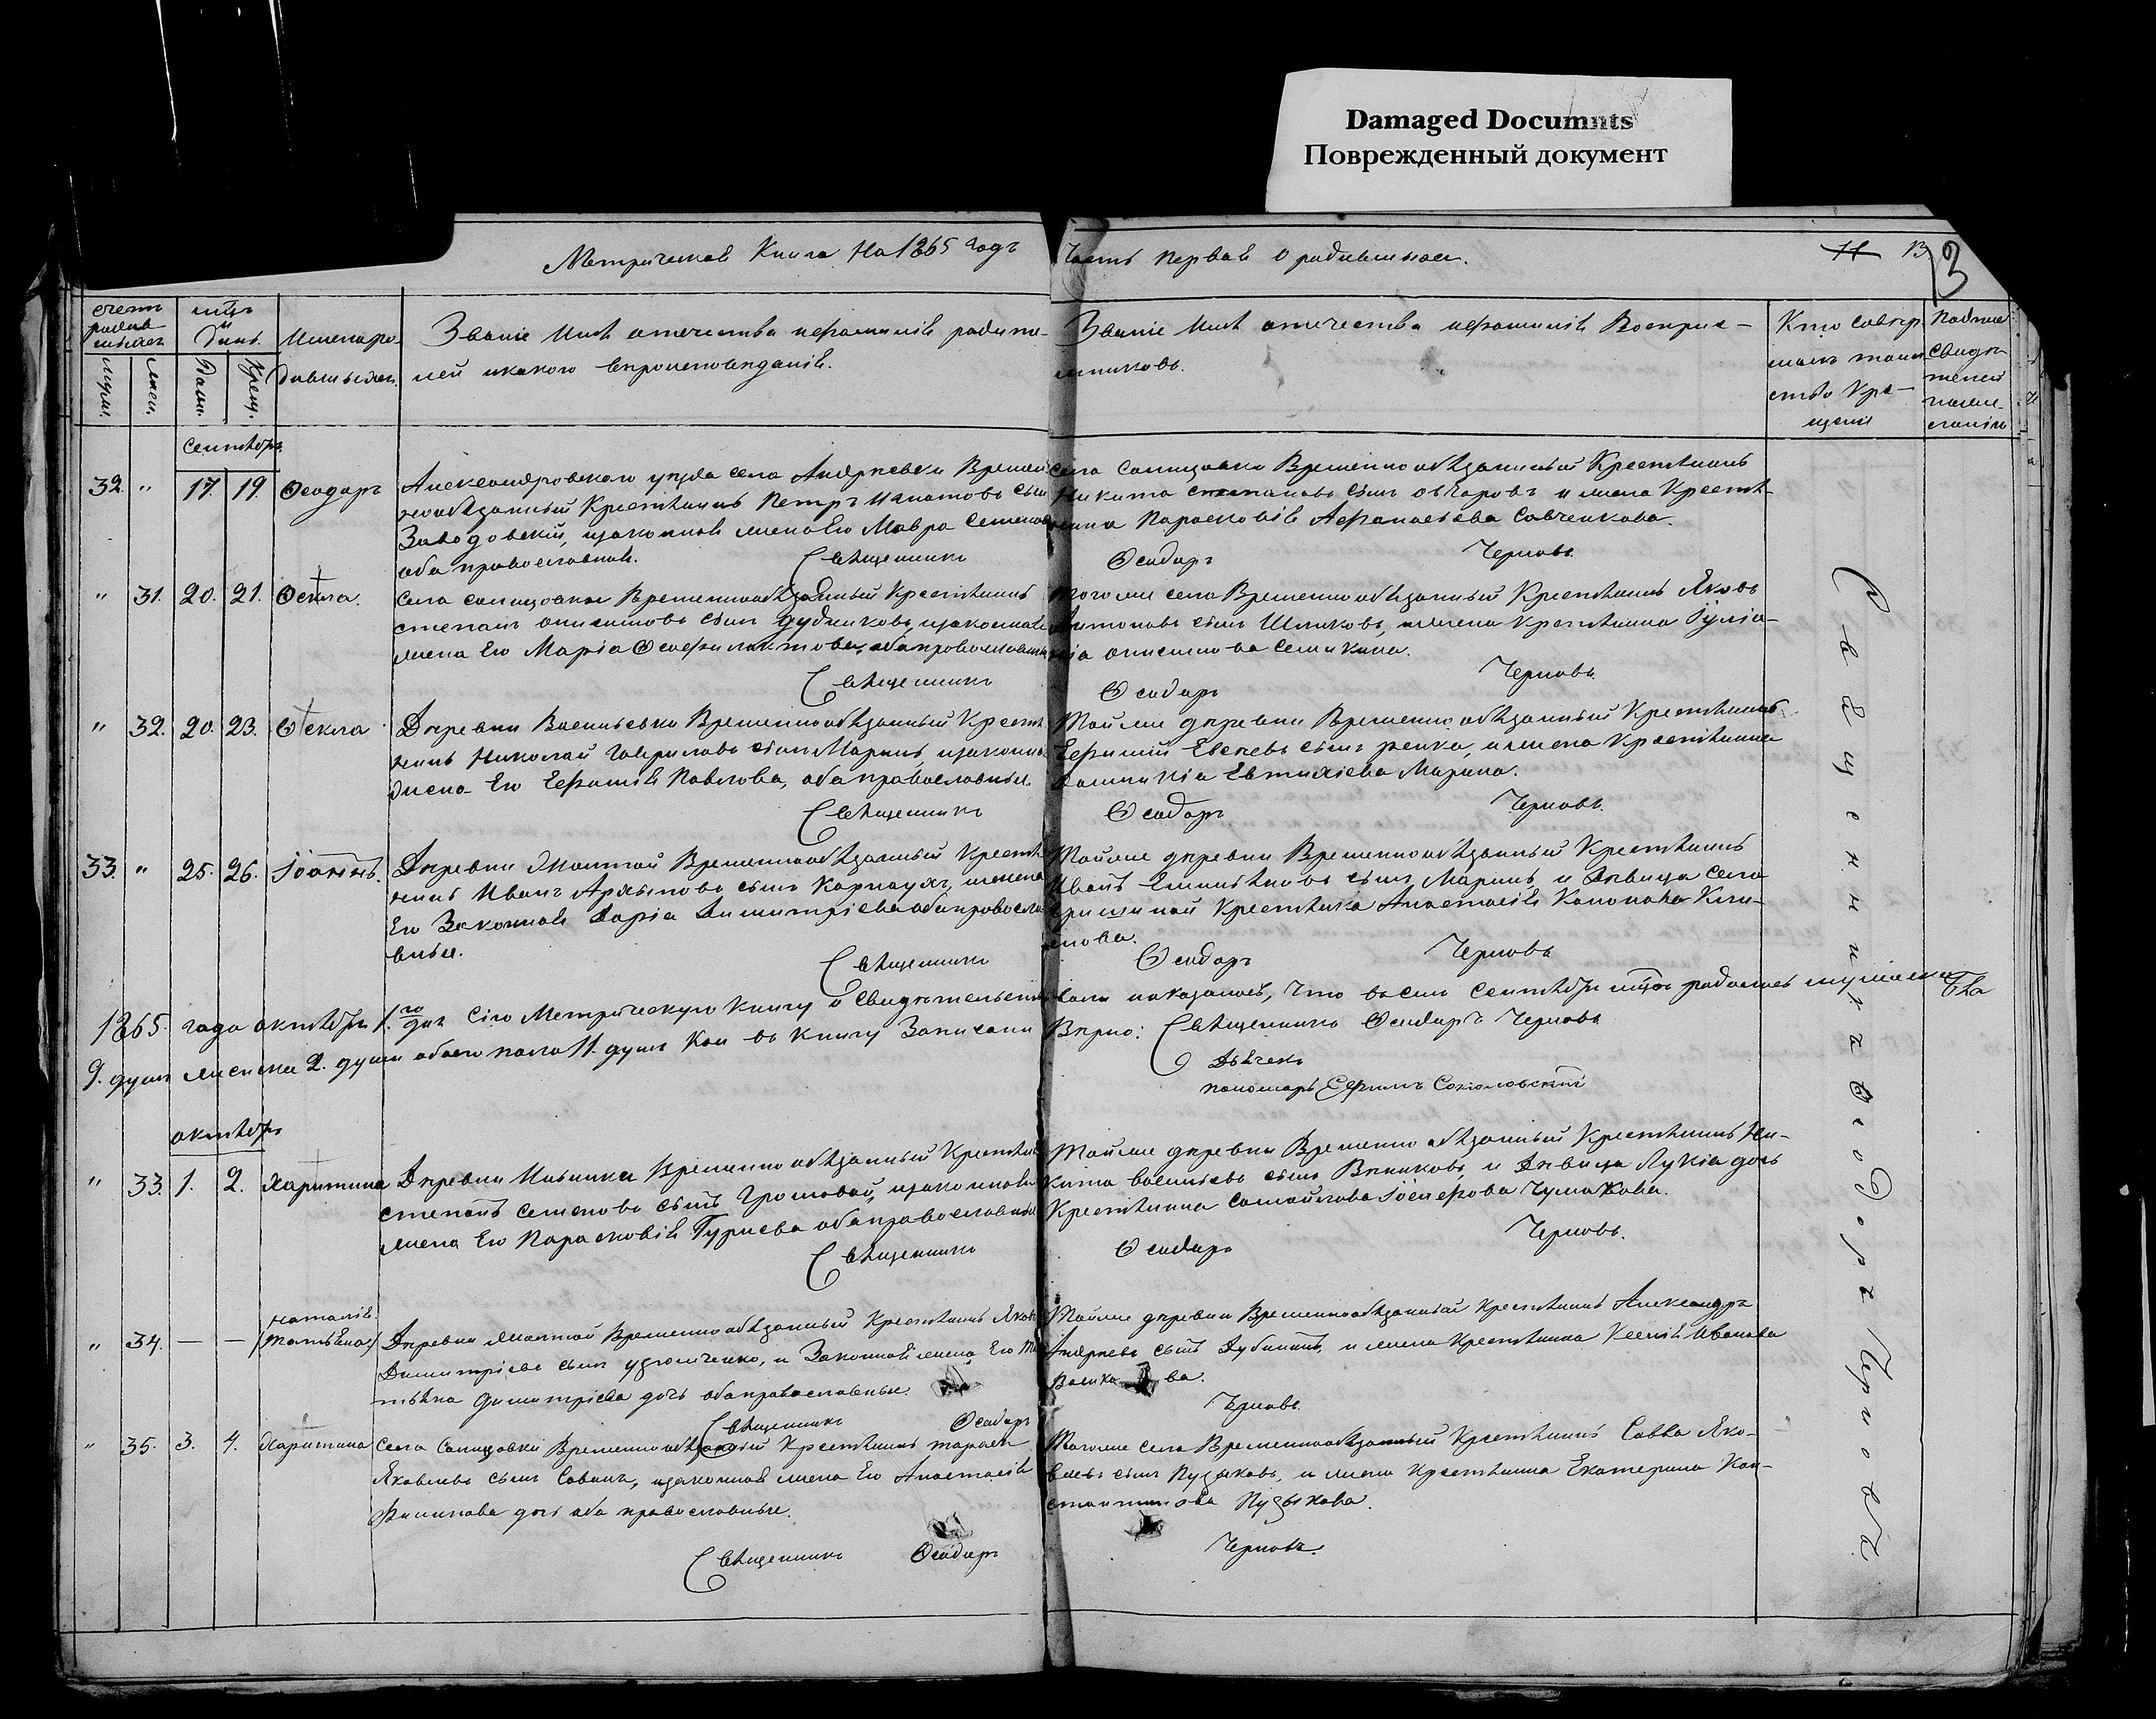 Damaged Documnts
Поврежденный документ
Метрическая Книга На 1865 годъ Часть первая О родившихся.
13
3
счетъ родив шихся
мцъ и День
Имена ро- дившихся.
Званіе Имя отечества ифамилія родите-
лей икакого вероисповеданія.
Званіе Имя отечества ифамилія Восприе-
мниковъ.
Кто соверш.
талъ таин
ство Кре-
щенія
свидѣ
телей
Крещ.
Сентябрь
32. " 17. 19. Ѳеодоръ
Александровского уѣзда села Андреевки Времен
нообязанный Крестьянинъ Петръ Игнатовъ сынъ
Заводовскій, изаконная жена Его Мавра Семенова
оба православной. Священникъ
села Солнцовки Временнообязанный Крестьянинъ
Никита степановъ сынъ овчаровъ и жена Крестья-
нина Парасковія Афанасьева Савченкова.
Ѳеодоръ Черновъ
" 31. 20. 21. Ѳекла.
села солнцовки Временнообязанный Крестьянинъ
степанъ онисимовъ сынъ дудниковъ, изаконная
жена Его Марія Ѳеофилактова, оба православны
Священникъ
Тогоже села Временнообязанный Крестьянинъ Яковъ
Антоновъ сынъ Шляховъ, ижена крестьянина Іулiа-
нiа онисимова Семикина.
Ѳеодоръ Черновъ
" 32. 20. 23. Ѳекла
Деревни Васильевки Временнообязанный Крестья
нинъ Николай Гавриловъ сынъ Маринъ, изаконна
жена Его Еуфимія Павлова, оба православные
Священникъ
Тойже деревни Временно обязанный Крестьянинъ
Ефимій Евсеевъ сынъ рѣпка, ижена крестьянина
Домникіа Евтихіева Марина.
Ѳеодоръ Черновъ.
33. " 25. 26. Іоаннъ.
Деревни Жолтой Временнообязанный Крестья
нинъ Иванъ Архиповъ сынъ Карнаухъ, ижена
Его Законная Дарія Димитріева оба правосла
вные.
Священникъ
Тойже деревни Временнообязанный Крестьянинъ
Иванъ Емельяновъ сынъ Маринъ, и Дѣвица села
гришиной Крестьянка Анастасія Кононова Кли-
мова.
Ѳеодоръ Черновъ
1865. года октября 1.го дня Сію Метрическую Книгу освидѣтельство
вали показалось, Что восемь Сентябрь мцѣ родилось мужеска
9. душъ женска 2. души обоего пола 11. душъ Кои въ книгу Записаны
Верно: Священникъ Ѳеодоръ Черновъ
Дьячекъ
пономарь Ефимъ Соколовскій
октября
" 33. 1. 2. Харитина
Деревни Ильинки Временно обязанный Крестьян
степанъ семеновъ сынъ Громовой, изаконная
жена Его Парасковія Гуриева оба православные
Священникъ
Тойже деревни Временно обязанный Крестьянинъ Ни-
кита васильевъ сынъ Вѣниковъ, и Дѣвица Лукія дочь
Крестьянина самойлова Іосифова Чумакова.
Ѳеодоръ Черновъ.
" 34. — — Наталія (Татьяна)
Деревни Жолтой Временнообязанный Крестьянинъ Яковъ
Димитріевъ сынъ удомченко, и Законная жена Его Та
тьяна Димитріева дочь оба православные.
Священникъ Ѳеодоръ
Тойже деревни Временнообязанный крестьянинъ Александръ
Андреевъ сынъ Дубининъ, и жена крестьянина Ксенія Иванова
Черновъ.
" 35. 3. 4. Харитина
Села Солнцовки Временнообязанный Крестьянинъ тарасъ
Яковлевъ сынъ Саванъ, изаконная жена Его Анастасія
Филипова дочь оба православные.
Священникъ Ѳеодоръ
Тогоже села Временнообязанный Крестьянинъ Савва Яко-
влевъ сынъ Пузыковъ, и жена Крестьянина Екатерина Кон-
стантинова Пузыкова.
Черновъ.
Священникъ Ѳеодоръ Черновъ